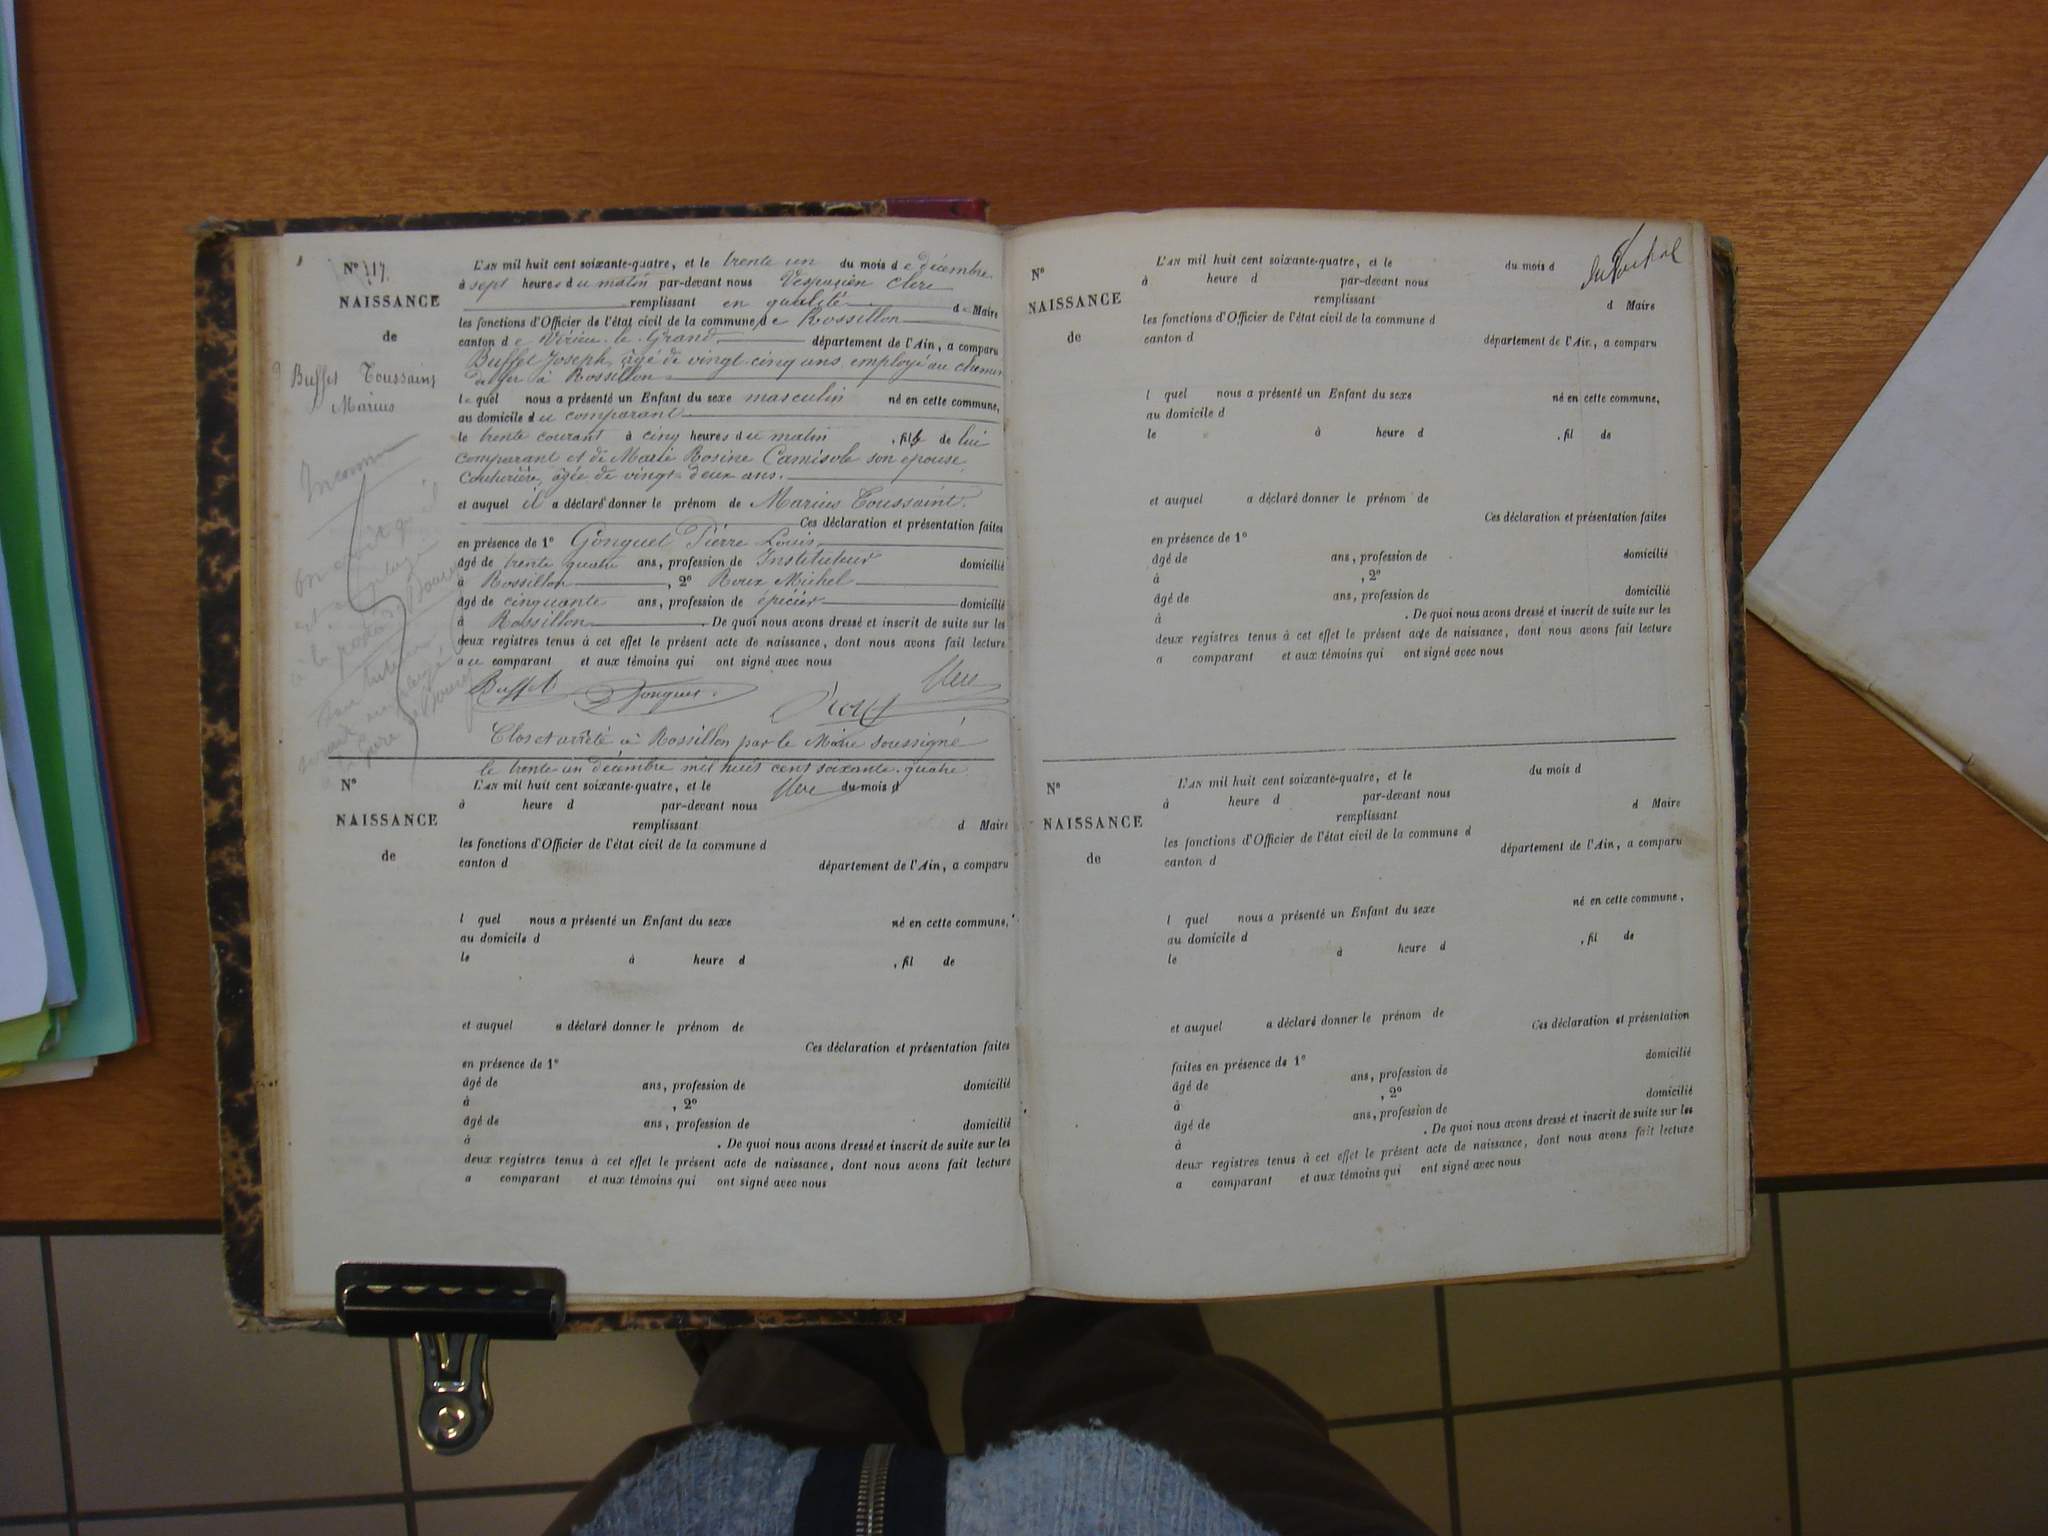 Nº 17.
NAISSANCE
de
Buffet Toussaint
Marius
L'AN mil huit cent soixante-quatre, et le trente un du mois de décembre
à sept heures du matin par-devant nous Vespasien Clerc
remplissant en qualité de Maire
les fonctions d'Officier de l'état civil de la commune de Rossillon
canton de Virieu-le-Grand département de l'Ain, a comparu
Buffet Joseph, âgé de vingt-cinq ans, employé au chemin
de fer à Rossillon
lequel nous a présenté un Enfant du sexe masculin né en cette commune,
au domicile du comparant
le trente courant à cinq heures du matin , fils de lui
comparant et de Marie Rosine Camisole son épouse,
couturière, âgée de vingt-deux ans.
et auquel il a déclaré donner le prénom de Marius Toussaint.
Ces déclaration et présentation faites
en présence de 1º Gonguet Pierre Louis
âgé de trente quatre ans, profession de Instituteur domicilié
à Rossillon , 2º Roux Michel
âgé de cinquante ans, profession de épicier domicilié
à Rossillon . De quoi nous avons dressé et inscrit de suite sur les
deux registres tenus à cet effet le présent acte de naissance, dont nous avons fait lecture
au comparant et aux témoins qui ont signé avec nous
Buffet Gonguet Clerc
Clos et arrêté à Rossillon par le Maire soussigné
le trente un décembre mil huit cent soixante-quatre
Clerc
Inconnu
on croit qu'il
est employé
à la poste de Bourg
Nº
NAISSANCE
de
L'AN mil huit cent soixante-quatre, et le du mois d
à heure d par-devant nous
remplissant d Maire
les fonctions d'Officier de l'état civil de la commune d
canton d département de l'Ain, a comparu
l quel nous a présenté un Enfant du sexe né en cette commune,
au domicile d
le à heure d , fil de
et auquel a déclaré donner le prénom de
Ces déclaration et présentation faites
en présence de 1º
âgé de ans, profession de domicilié
à , 2º
âgé de ans, profession de domicilié
à . De quoi nous avons dressé et inscrit de suite sur les
deux registres tenus à cet effet le présent acte de naissance, dont nous avons fait lecture
a comparant et aux témoins qui ont signé avec nous
Nº
NAISSANCE
de
L'AN mil huit cent soixante-quatre, et le du mois d
à heure d par-devant nous
remplissant d Maire
les fonctions d'Officier de l'état civil de la commune d
canton d département de l'Ain, a comparu
l quel nous a présenté un Enfant du sexe né en cette commune,
au domicile d
le à heure d , fil de
et auquel a déclaré donner le prénom de
Ces déclaration et présentation faites
en présence de 1º
âgé de ans, profession de domicilié
à , 2º
âgé de ans, profession de domicilié
à . De quoi nous avons dressé et inscrit de suite sur les
deux registres tenus à cet effet le présent acte de naissance, dont nous avons fait lecture
a comparant et aux témoins qui ont signé avec nous
Nº
NAISSANCE
de
L'AN mil huit cent soixante-quatre, et le du mois d
à heure d par-devant nous
remplissant d Maire
les fonctions d'Officier de l'état civil de la commune d
canton d département de l'Ain, a comparu
l quel nous a présenté un Enfant du sexe né en cette commune,
au domicile d
le à heure d , fil de
et auquel a déclaré donner le prénom de
Ces déclaration et présentation
faites en présence de 1º domicilié
âgé de ans, profession de
à , 2º domicilié
âgé de ans, profession de
à . De quoi nous avons dressé et inscrit de suite sur les
deux registres tenus à cet effet le présent acte de naissance, dont nous avons fait lecture
a comparant et aux témoins qui ont signé avec nous